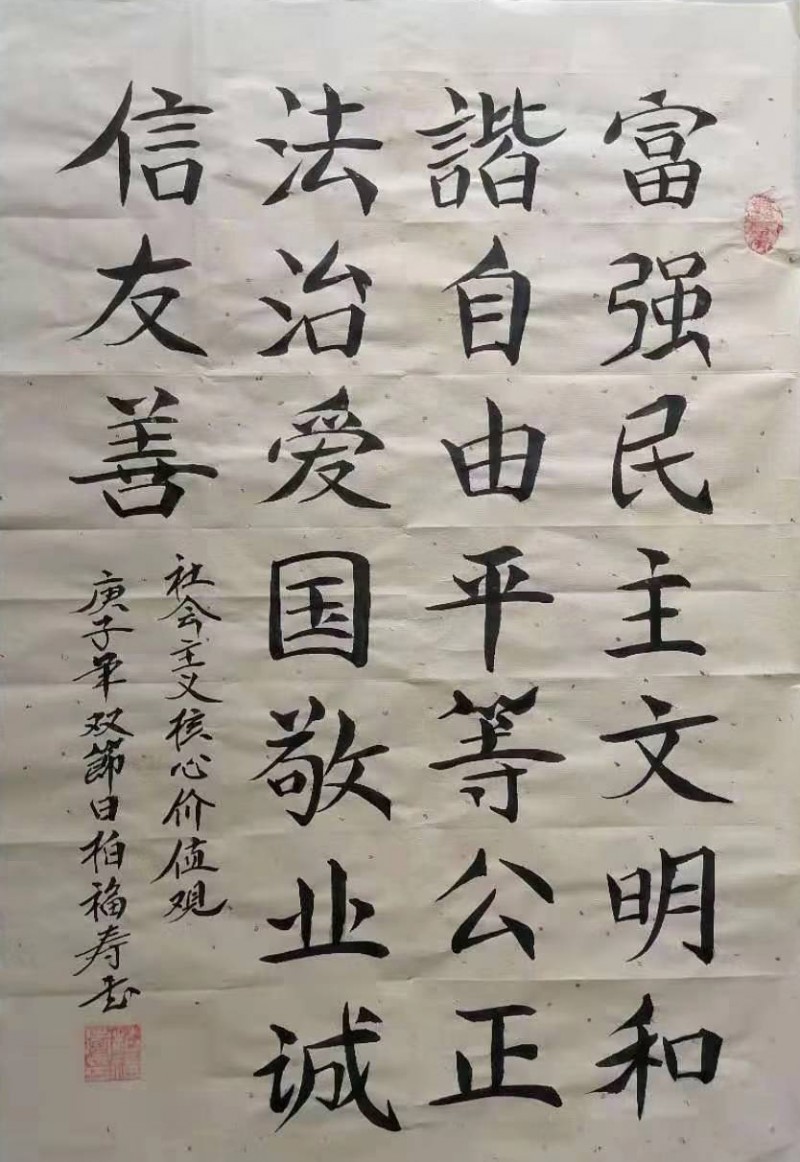 富强民主文明和
諧自由平等公正
法治爱国敬业诚
信友善
社会主义核心价值观
庚子年双節日柏福寿书